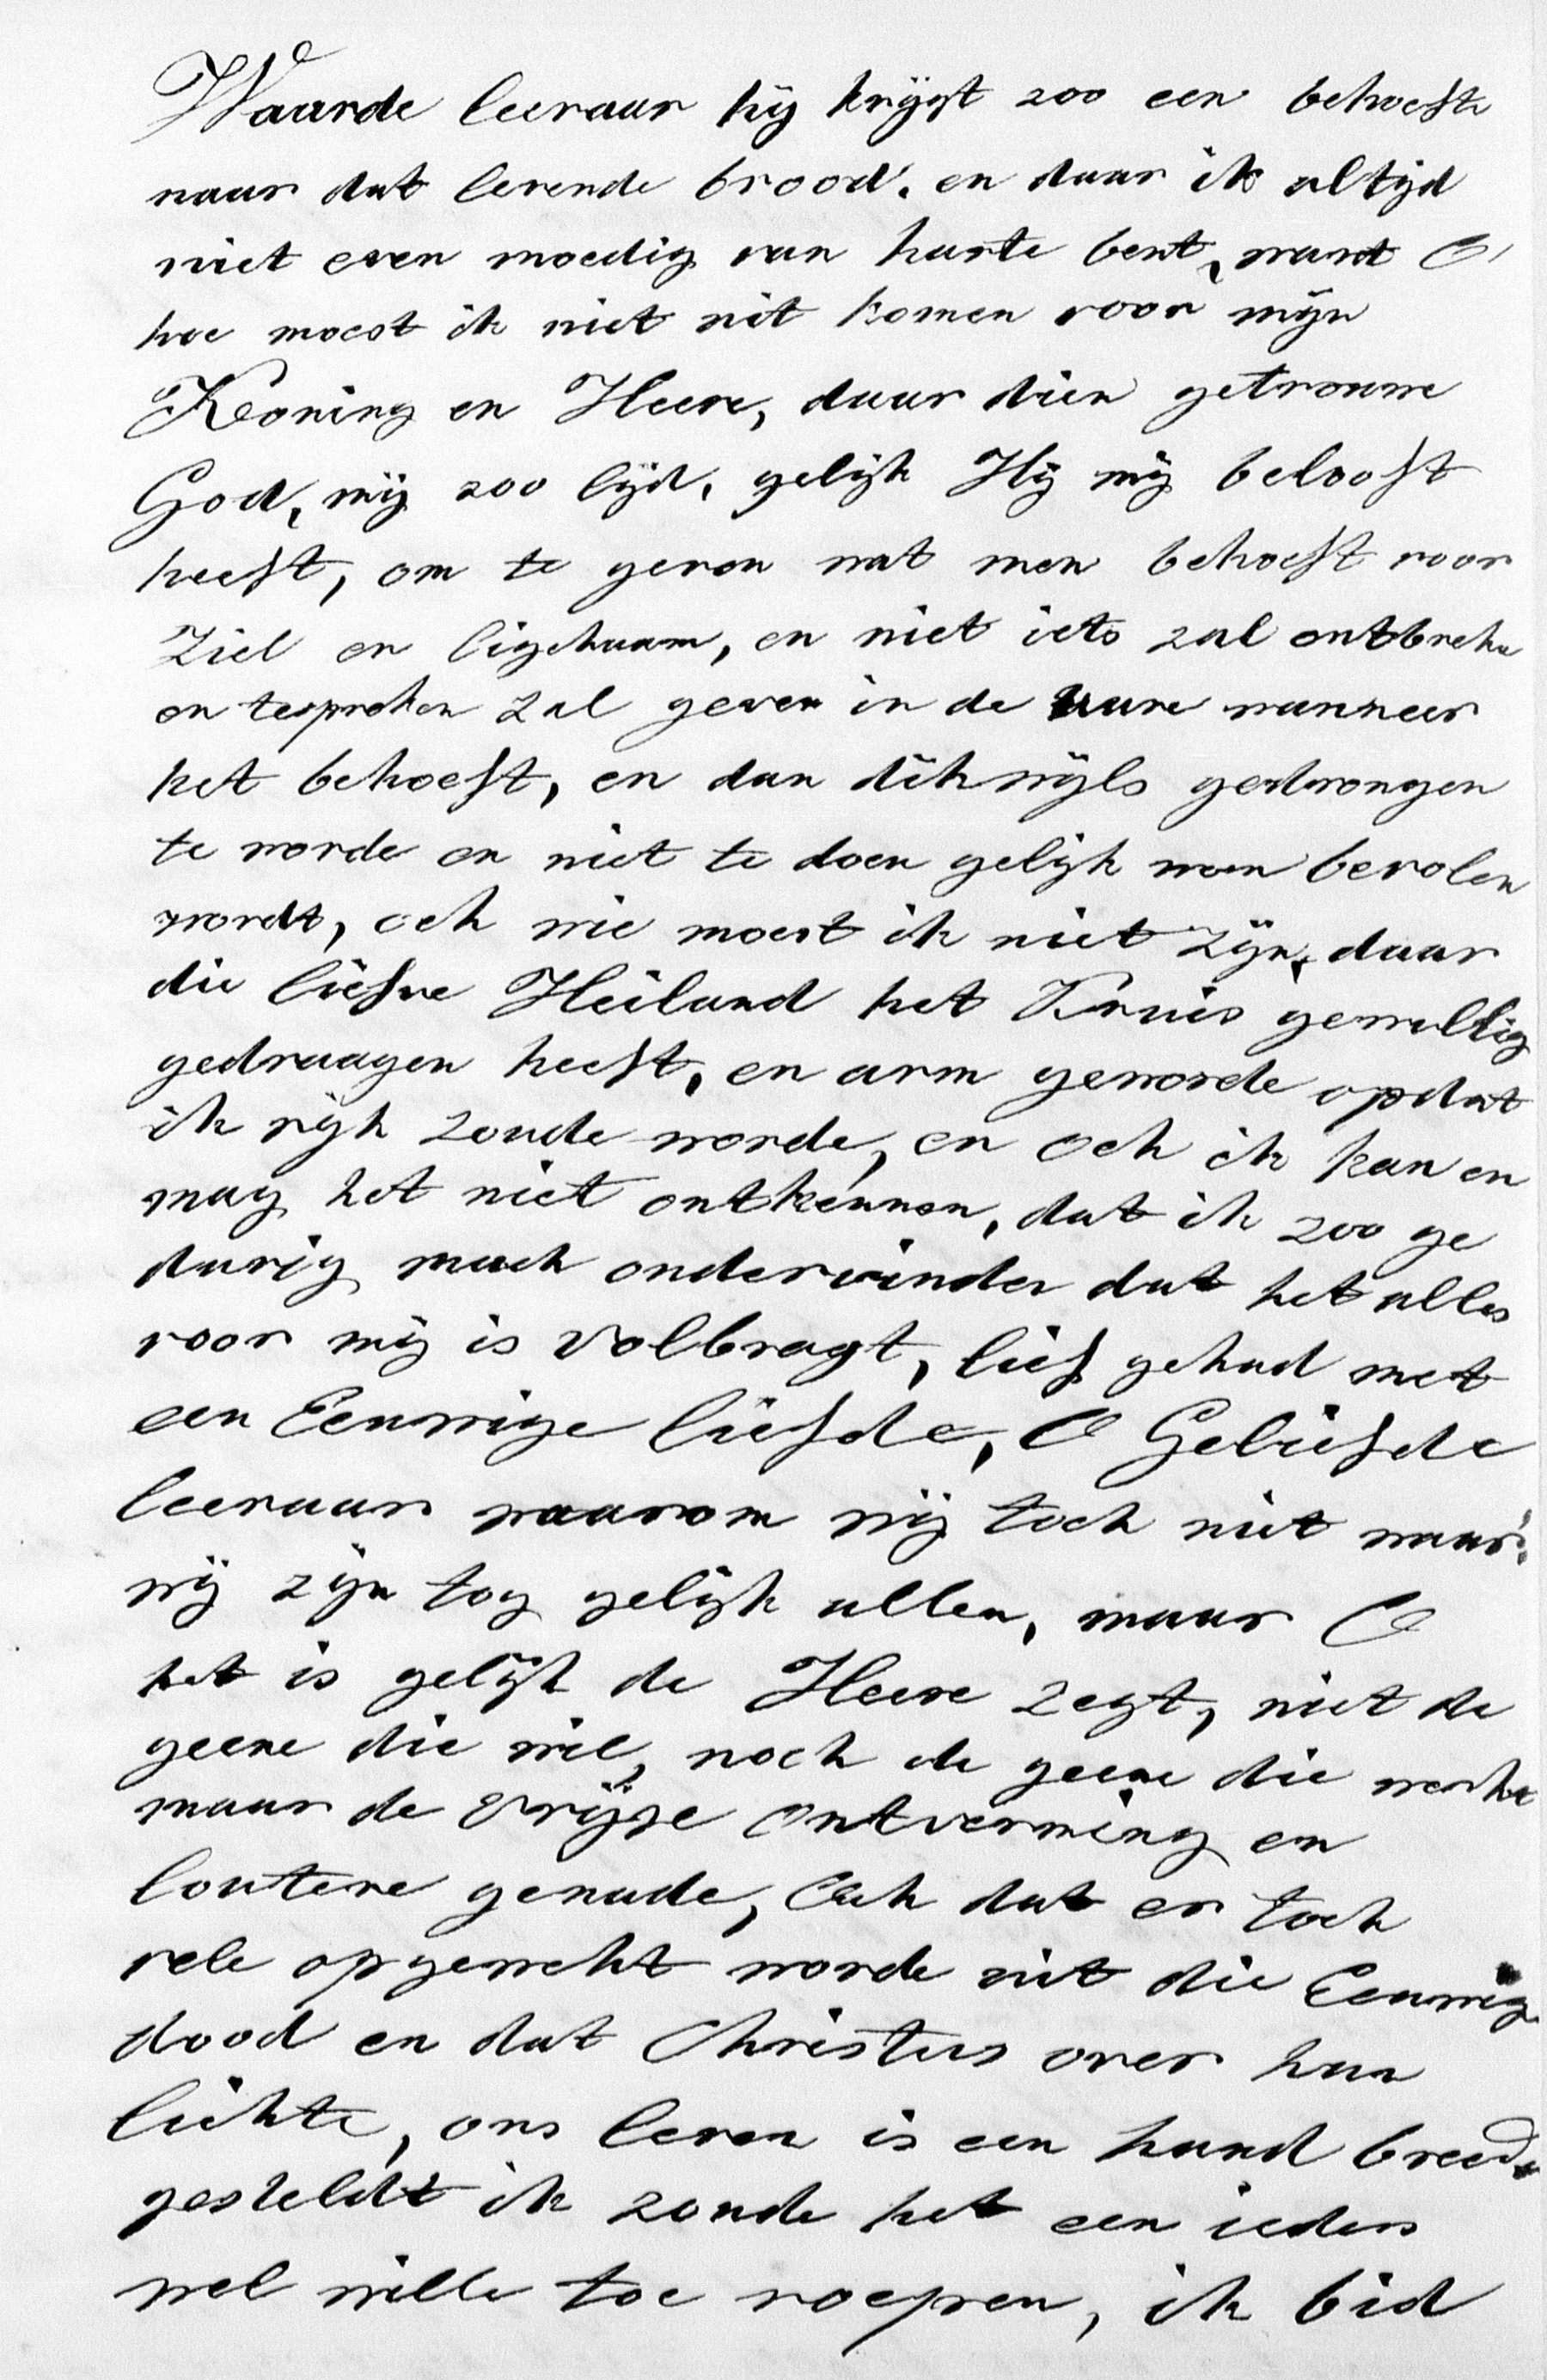 Waarde leeraar hij krijgt zoo een behoefte
naar dat levende brood. en daar ik altijd
niet even moedig van harte bent, want O
hoe moest ik niet uit komen voor mijn
Kooning en Heere, daar dien getrouwe
God, mij zoo lijd, gelijk Hij mij belooft
heeft, om te geven wat men behoeft voor
Ziel en ligchaam, en niet iets zal ontbreke
en tespreken zal geven in de uure wanneer
het behoeft, en dan dikwijls gedwongen
te worde en niet te doen gelijk men bevolen
wordt, och wie moest ik niet zijn, daar
die liefve Heiland het Kruis gewillig
gedraagen heeft, en arm geworde opdat
ik rijk zoude worde, en och ik kan en
mag het niet ontkennen, dat ik zoo ge
durig mach ondervinden dat het alles
voor mij is volbragt, lief gehad met
een Eeuwige liefde, O Geliefde
leeraar waarom mij toch niet waar,
wij zijn tog gelijk allen, maar O
het is gelijk de Heere zegt, niet de
geene die wil, noch de geene die werkt
maar de vrije ontverming en
loutere genade, Och dat er toch
vele opgewekt worde uit die Eeuwige
dood en dat Christus over hun
lichte, ons leven is een hand breed
gesteldt ik zoude het een ieders
wel wille toe roepen, ik bid